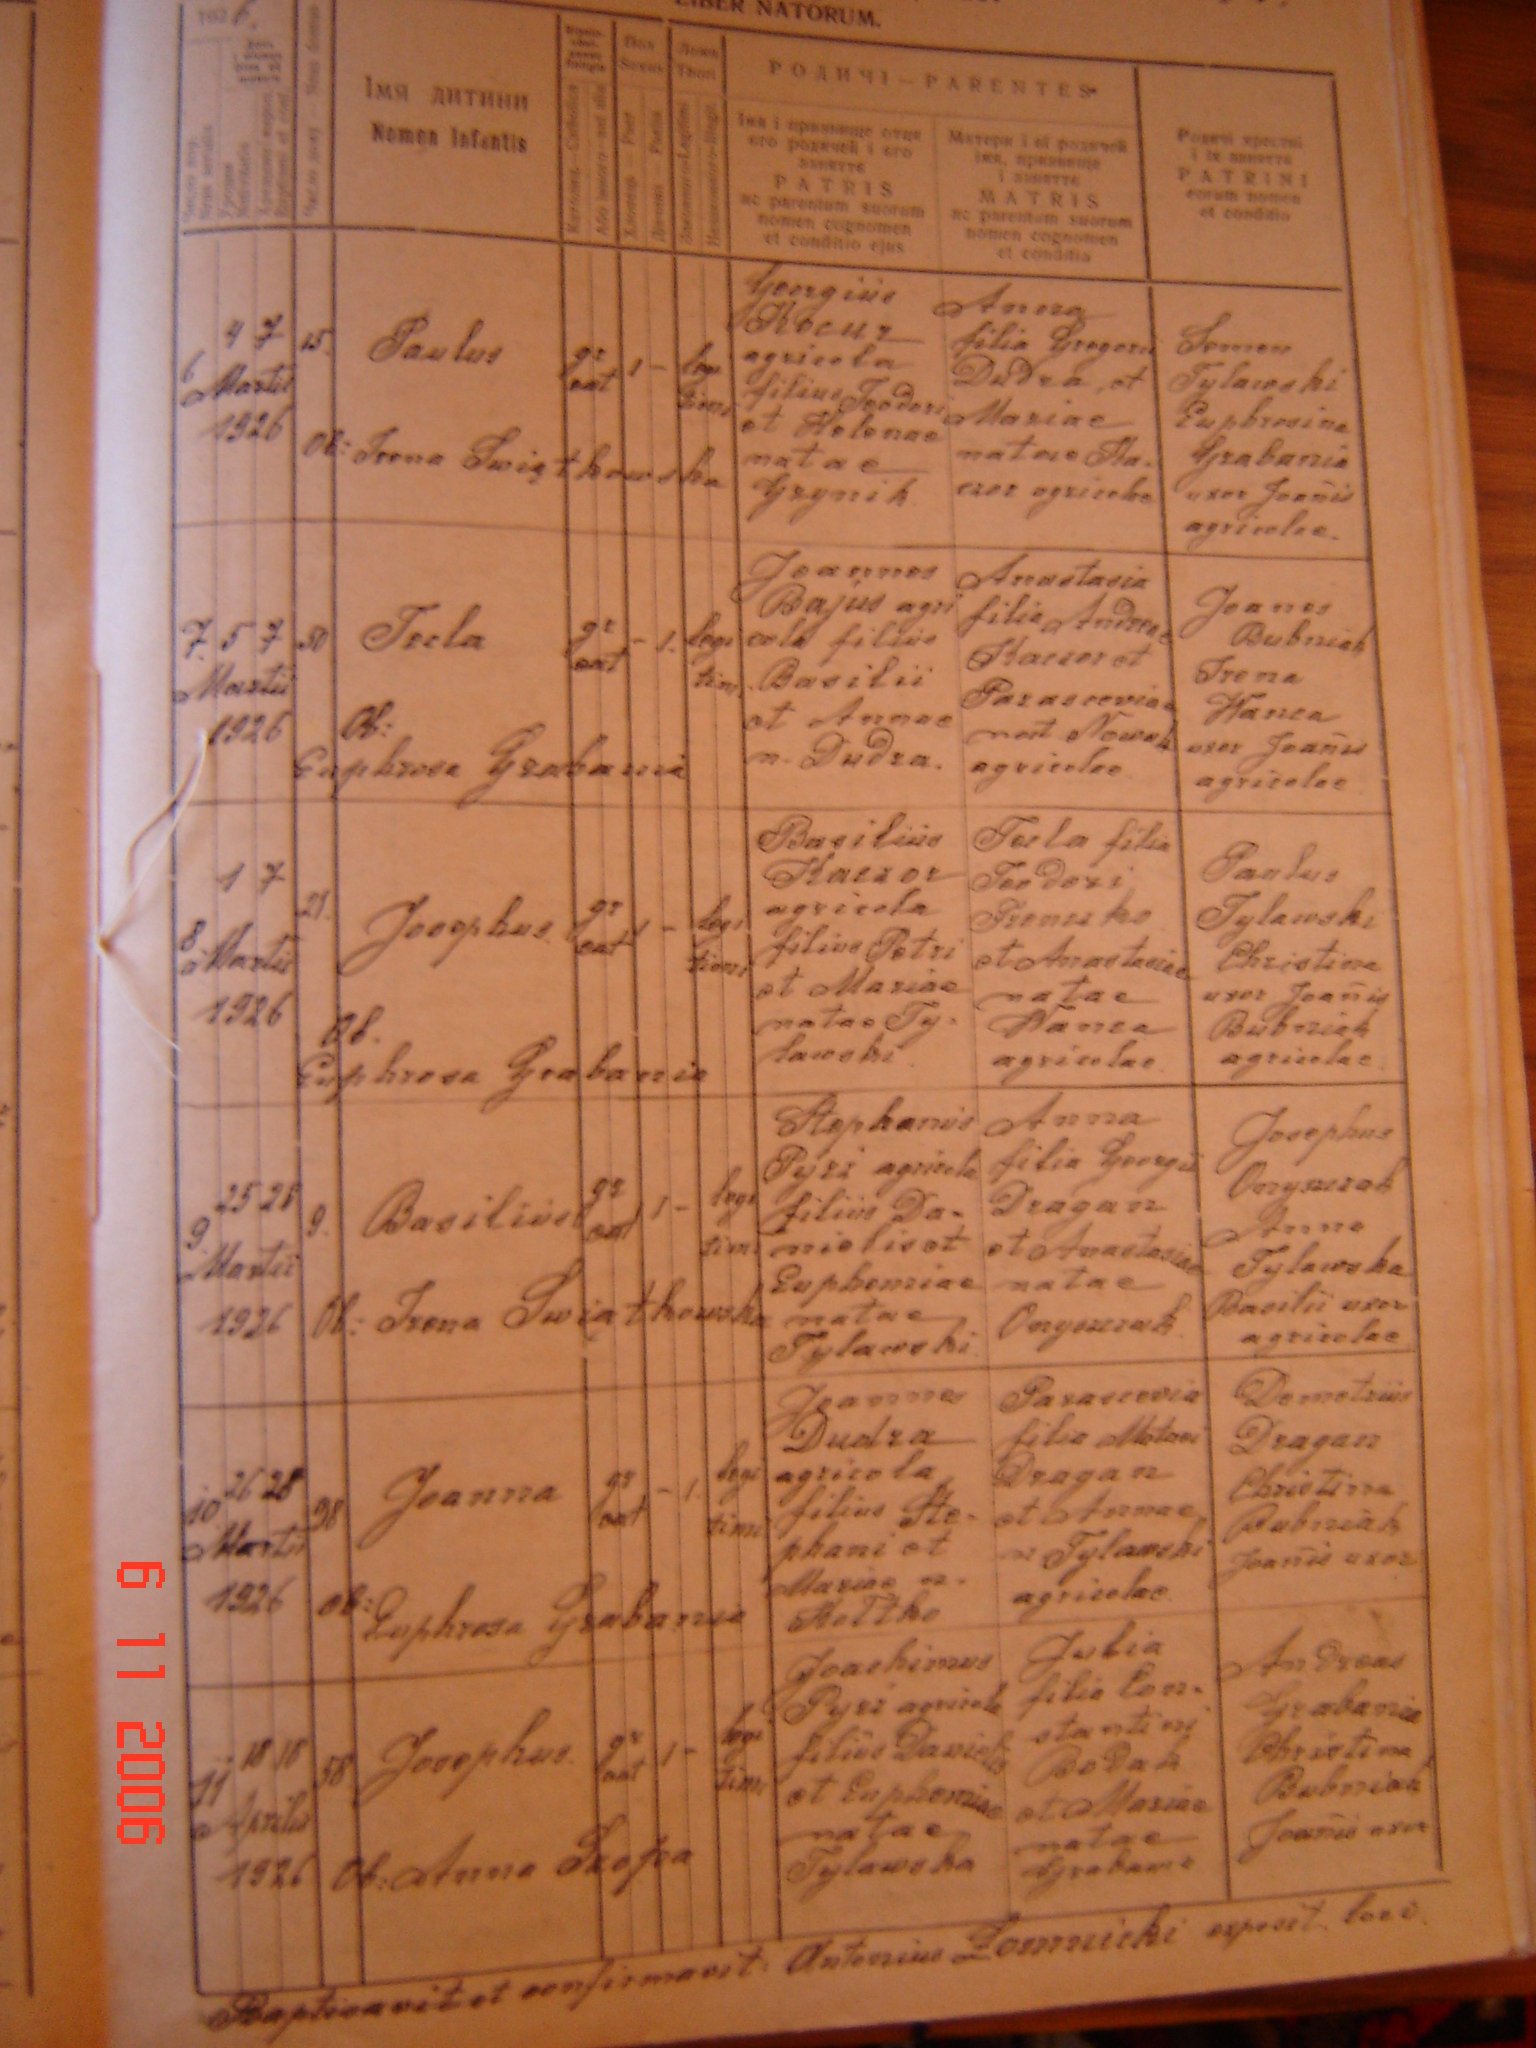 LIBER NATORUM.
192 6.
Імя дитини
Nomen Infantis
Пол
Sexus
Ложа
Thori
РОДИЧІ — PARENTES
Імя і прізвище отця
его родичей і его
заняття
PATRIS
ac parentum suorum
nomen cognomen
et conditio ejus
Матери і еї родичей
імя, прізвище
і заняття
MATRIS
ac parentum suorum
nomen cognomen
et conditio
Родичі хрестні
і їх заняття
PATRINI
eorum nomen
et conditio
6
4 7
Martii
1926
15.
Paulus
gr
cat
1 —
legi
timi
Ob: Irena Świątkowska
Georgius
Kocur
agricola
filius Teodori
et Helenae
natae
Hrynik
Anna
filia Gregorii
Dudra et
Mariae
natae Ka-
czor agricolae
Semen
Tylawski
Euphrosina
Grabania
uxor Joañis
agricolae.
7.
5 7
Martii
1926
50
Tecla
gr
cat
— 1.
legi
timi
Ob:
Euphrosa Grabania
Joannes
Bajus agri
cola filius
Basilii
et Annae
n. Dudra.
Anastasia
filia Andreae
Kaczor et
Parasceviae
nat Nowak
agricolae
Joanes
Bubniak
Irena
Wanca
uxor Joañis
agricolae
8
1 7
Martii
1926
21.
Josephus
gr
cat
1 —
legi
timi
Ob.
Euphrosa Grabania
Basilius
Kaczor
agricola
filius Petri
et Mariae
natae Ty-
lawski
Tecla filia
Teodori
Frencko
et Anastasiae
natae
Wanca
agricolae
Paulus
Tylawski
Christina
uxor Joañis
Bubniak
agricolae
9
25 28
Martii
1926
9.
Basilius
gr
cat
1 —
legi
timi
Ob: Irena Świątkowska
Stephanus
Pyrz agricola
filius Da-
nielis et
Euphemiae
natae
Tylawski
Anna
filia Georgii
Dragan
et Anastasiae
natae
Onyszczak
Josephus
Onyszczak
Anna
Tylawska
Basilii uxor
agricolae
10
26 28
Martii
1926
98
Joanna
gr
cat
— 1.
legi
timi
Ob: Euphrosa Grabania
Joannes
Dudra
agricola
filius Ste-
phani et
Mariae n.
Kostko
Parascevia
filia Matwei
Dragan
et Annae
n Tylawski
agricolae
Demetrius
Dragan
Christina
Bubniak
Joañis uxor
11
18 18
Aprilis
1926
58
Josephus.
gr
cat
1 —
legi
timi
Ob: Anna Szofra
Joachimus
Pyrz agricola
filius Danielis
et Euphemiae
natae
Tylawska
Julia
filia Con-
stantini
Bodak
et Mariae
natae
Grabania
Andreas
Grabania
Christina
Bubniak
Joañis uxor
Baptisavit et confirmavit: Antonius Łomnicki exposit. loci.
6 11 2006